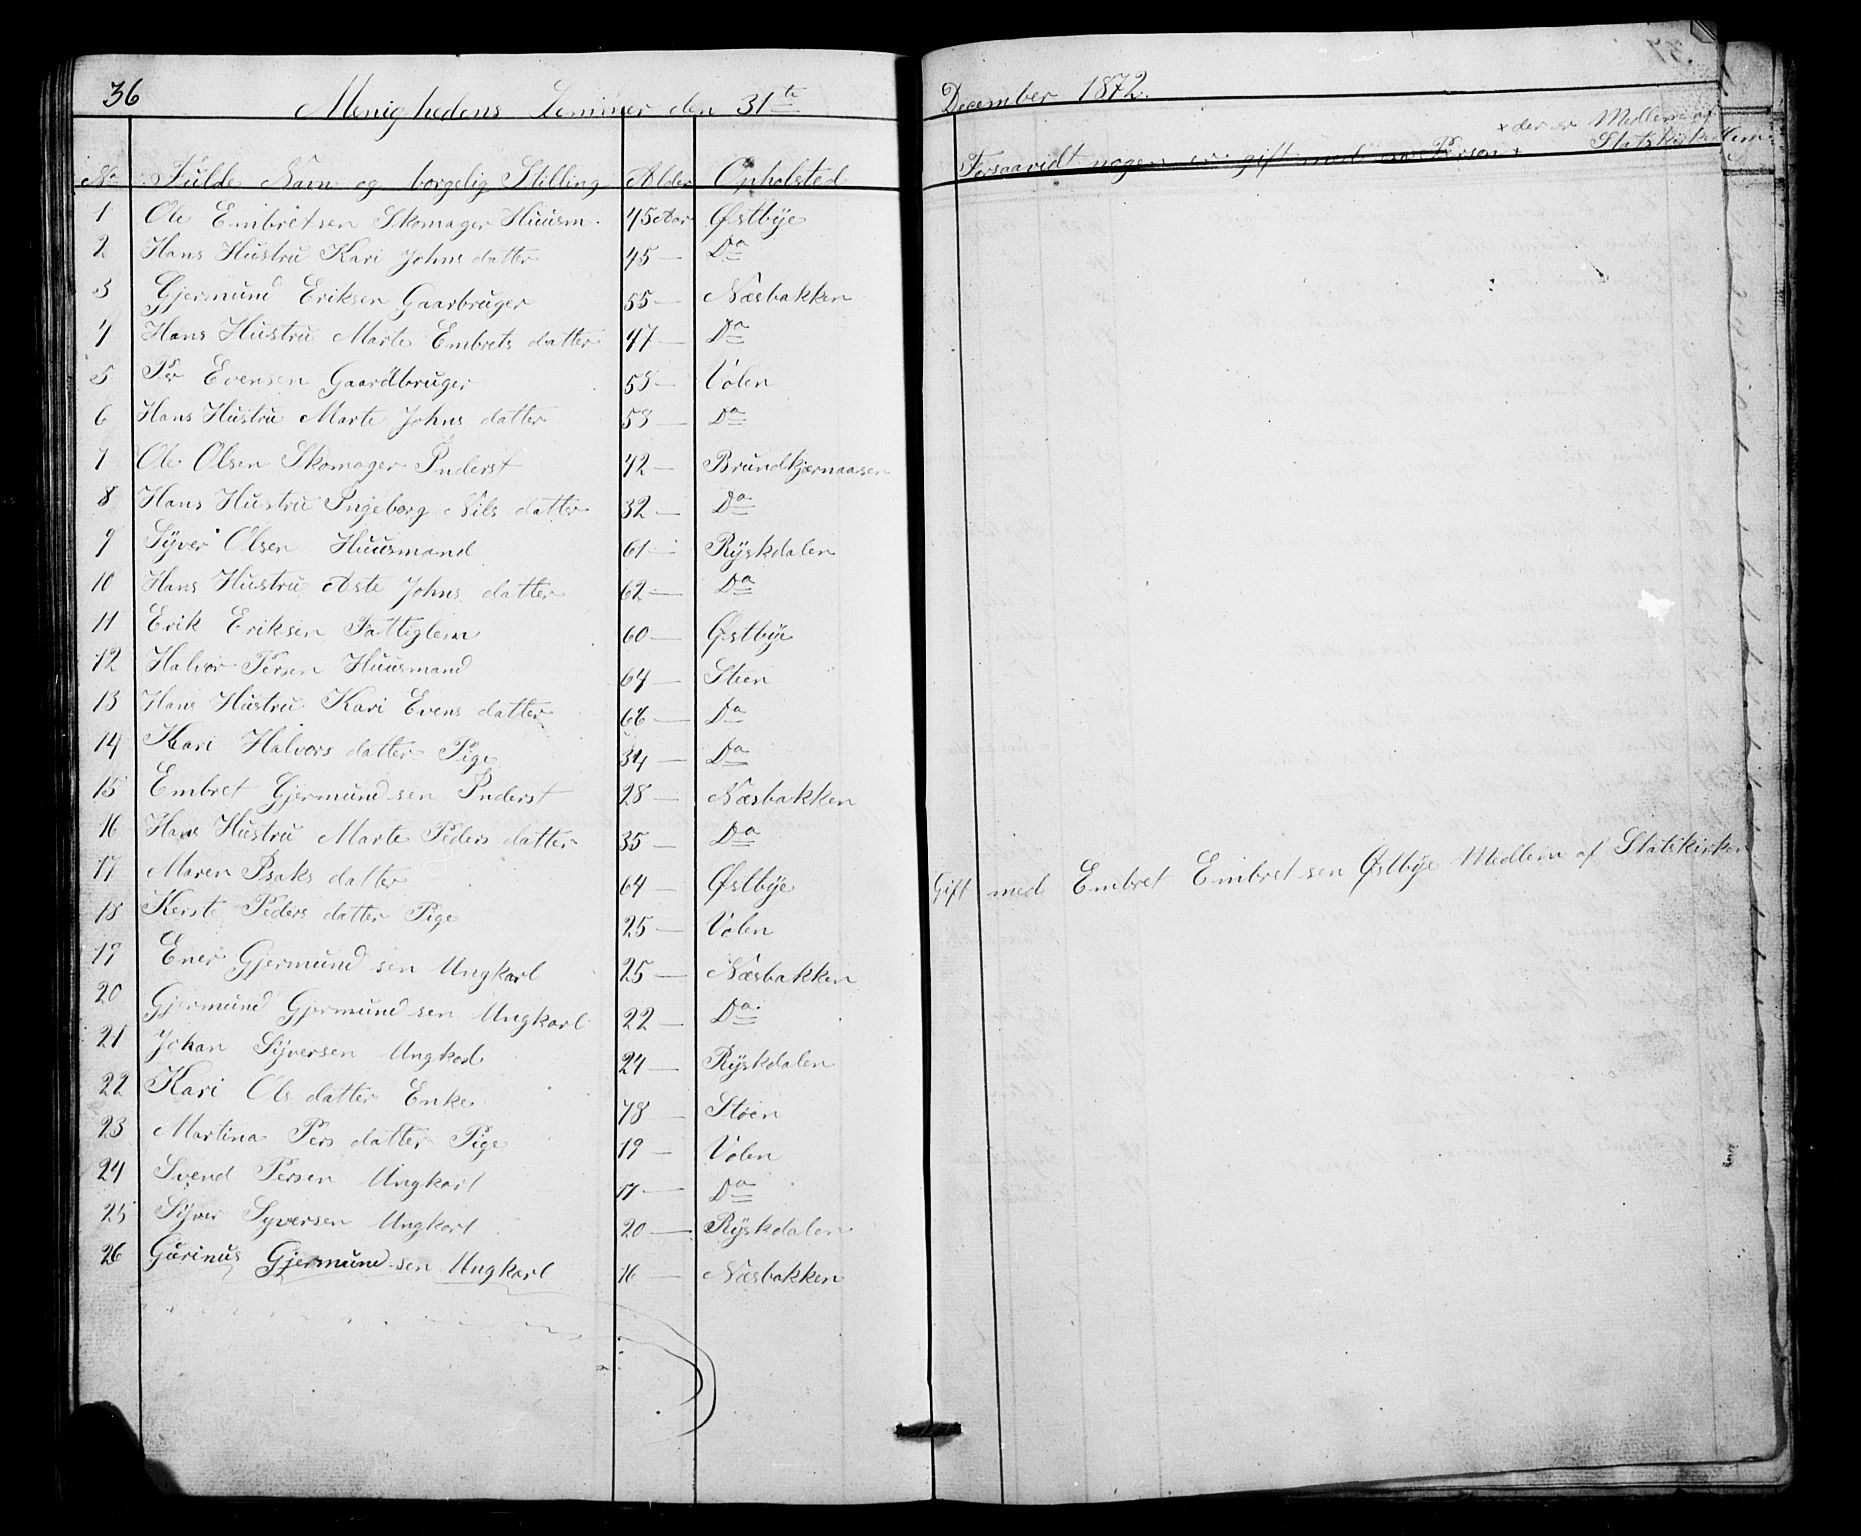 36
Menighedens Lemmer den 31te December 1872.
No Fulde Navn og borgelig Stilling Alder Opholsted Forsaavidt nogen er gift med en Person x
x der er Medlem af
Statskirken
1 Ole Embretsen Skomager Huusm. 45 Aar Østbye
2 Hans Hustru Kari Johns datter 45 — Do
3 Gjermund Eriksen Gaarbruger 55 — Næsbakken
4 Hans Hustru Marte Embrets datter 47 — Do
5 Per Evensen Gaardbruger 55 — Volen
6 Hans Hustru Marte Johns datter 53 — Do
7 Ole Olsen Skomager Inderst 42 — Brundkjernaasen
8 Hans Hustru Ingeborg Nils datter 32 — Do
9 Syver Olsen Huusmand 61 — Ryskdalen
10 Hans Hustru Aste Johns datter 62 — Do
11 Erik Eriksen Fattiglem 60 — Østbye
12 Halvor Persen Huusmand 64 — Støen
13 Hans Hustru Kari Evens datter 66 — Do
14 Kari Halvors datter Pige 34 — Do
15 Embret Gjermund sen Inderst 28 — Næsbakken
16 Hans Hustru Marte Peders datter 35 — Do
17 Maren Isaks datter 64 — Østbye Gift med Embret Embret sen Østbye Medlem af Statskirken
18 Kerste Peders datter Pige 25 — Volen
19 Ener Gjermund sen Ungkarl 25 — Næsbakken
20 Gjermund Gjermund sen Ungkarl 22 — Do
21 Johan Syversen Ungkarl 24 — Ryskdalen
22 Kari Ols datter Enke 78 — Støen
23 Martina Pers datter Pige 19 — Volen
24 Svend Persen Ungkarl 17 — Do
25 Syver Syversen Ungkarl 20 — Ryskdalen
26 Gurinus Gjermund sen Ungkarl 16 — Næsbakken